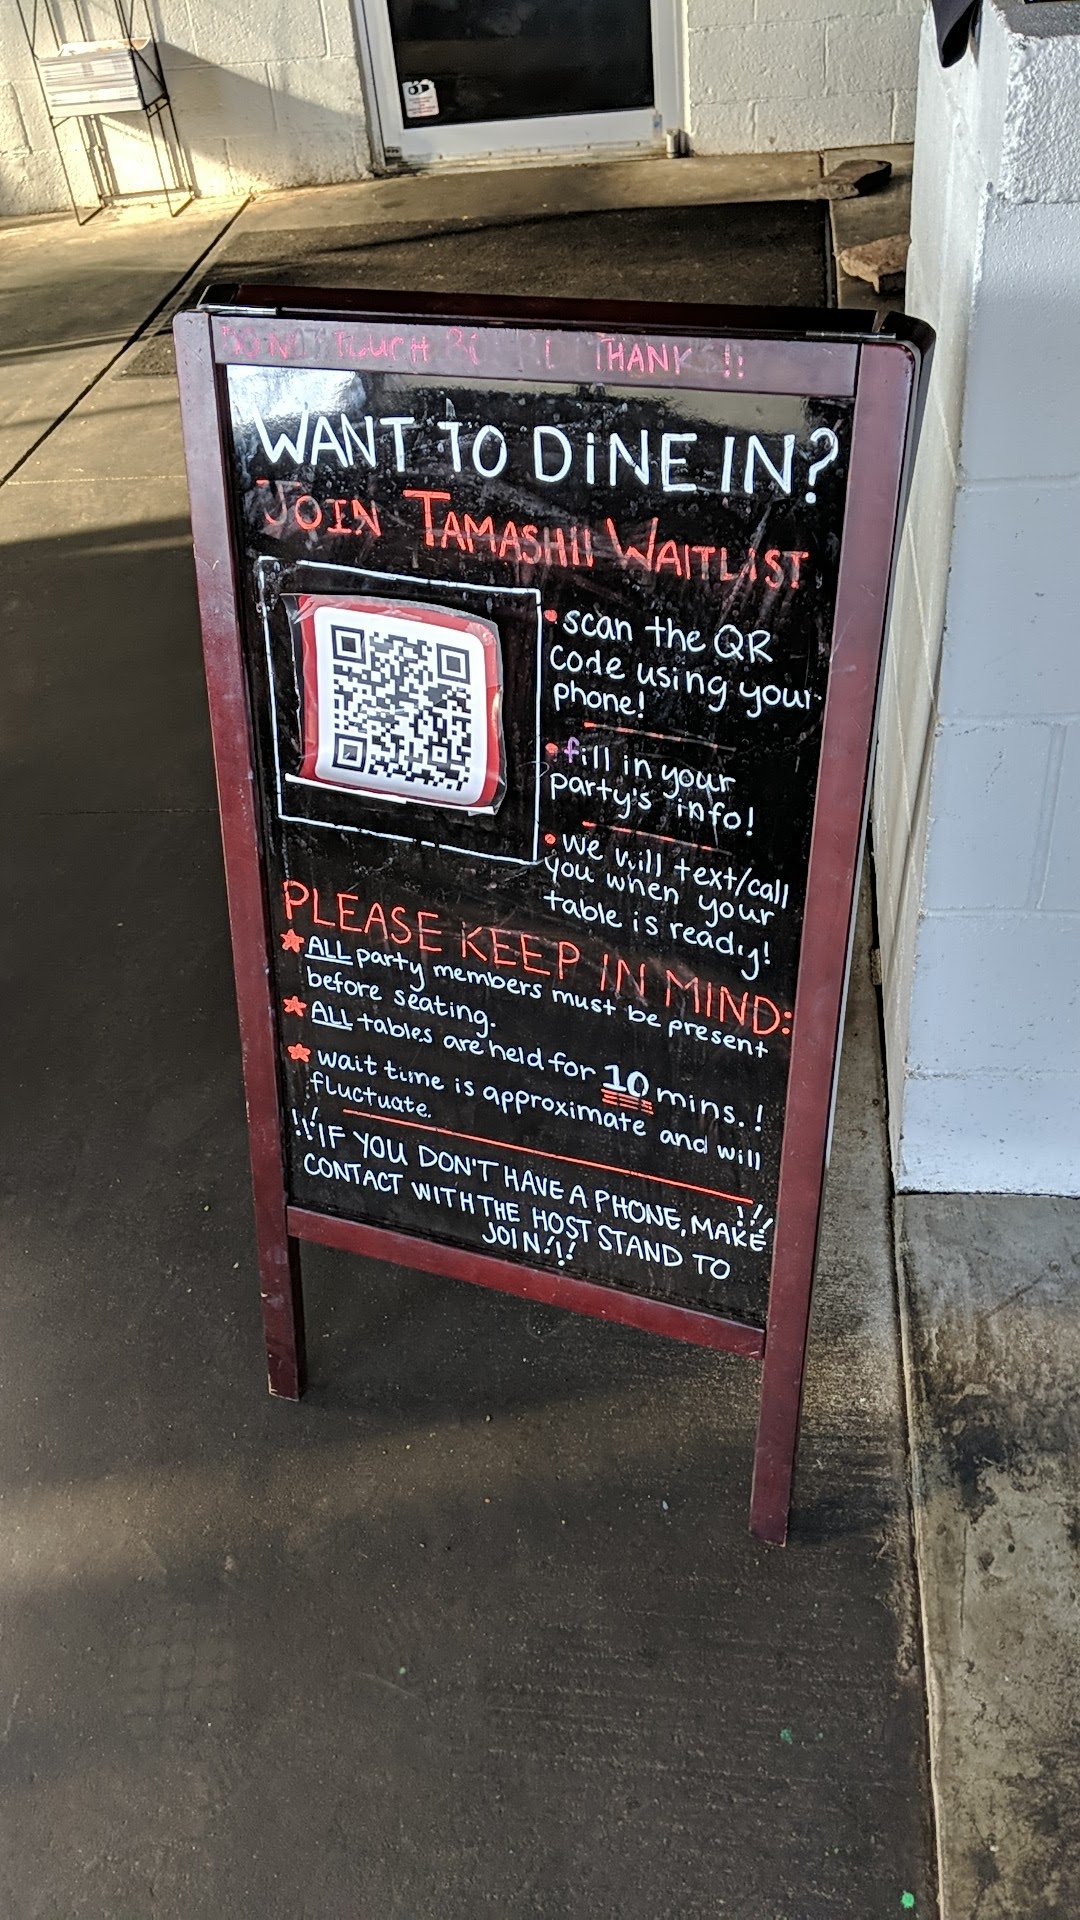 DO NOT TOUCH THANK !!
WANT TO DINE IN?
JOIN TAMASHII WAITLIST
• scan the QR
code using your
phone!
• fill in your
party's info!
• we will text/call
you when your
table is ready!
PLEASE KEEP IN MIND:
★ ALL party members must be present
before seating.
★ ALL tables are held for 10 mins.!
★ wait time is approximate and will
fluctuate.
!!! IF YOU DON'T HAVE A PHONE, MAKE !!!
CONTACT WITH THE HOST STAND TO
JOIN!!!